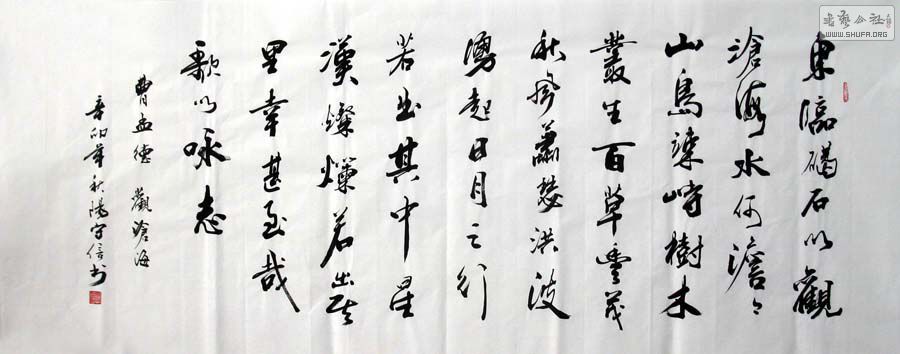 東臨碣石以觀
滄海水何澹々
山島竦峙樹木
叢生百草豐茂
秋風蕭瑟洪波
湧起日月之行
若出其中星
漢燦爛若出其
里幸甚至哉
歌以咏志
曹孟德 觀滄海
辛卯年秋守信书
书艺公社
WWW.SHUFA.ORG